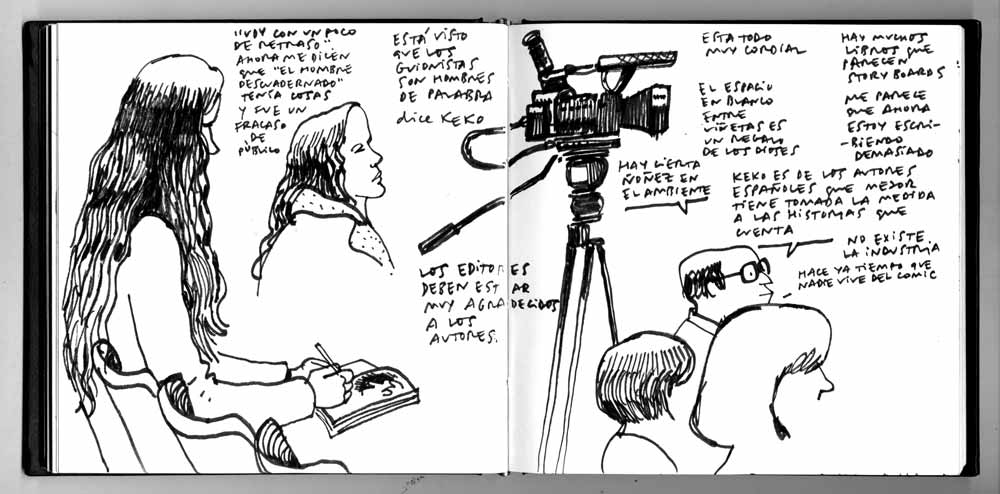 "VOY CON UN POCO
DE RETRASO"
AHORA ME DICEN
QUE "EL HOMBRE
DESCUADERNADO"
TENÍA COSAS
Y FUE UN
FRACASO
DE
PÚBLICO
ESTÁ VISTO
QUE LOS
GUIONISTAS
SON HOMBRES
DE PALABRA
dice KEKO
LOS EDITORES
DEBEN ESTAR
MUY AGRADECIDOS
A LOS
AUTORES.
ESTA TODO
MUY CORDIAL
EL ESPACIO
EN BLANCO
ENTRE
VIÑETAS ES
UN REGALO
DE LOS DIOSES
HAY MUCHOS
LIBROS QUE
PARECEN
STORY BOARDS
ME PARECE
QUE AHORA
ESTOY ESCRI-
-BIENDO
DEMASIADO
HAY CIERTA
ÑOÑEZ EN
EL AMBIENTE
KEKO ES DE LOS AUTORES
ESPAÑOLES QUE MEJOR
TIENE TOMADA LA MEDIDA
A LAS HISTORIAS QUE
CUENTA
NO EXISTE
LA INDUSTRIA
HACE YA TIEMPO QUE
NADIE VIVE DEL COMIC